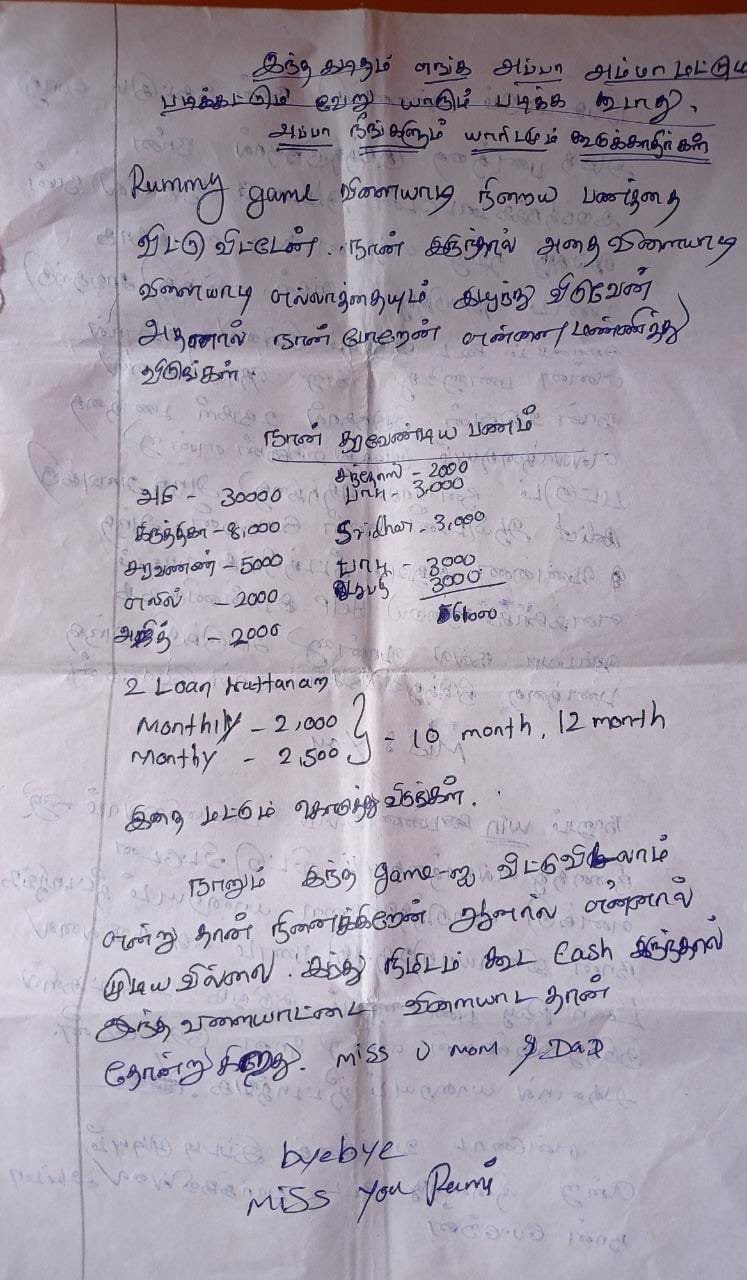 இந்த கடிதம் எங்க அப்பா அம்மா மட்டும்
படிக்கட்டும் வேறு யாரும் படிக்க கூடாது.
அப்பா நீங்களும் யாரிடமும் கூடுக்காதிர்கள்
Rummy game விளையாடி நிறைய பணத்தை
விட்டு விட்டேன். நான் இருந்தால் அதை விளையாடி
விளையாடி எல்லாத்தையும் இழந்து விடுவேன்
அதனால் நான் போறேன் என்னை மண்ணித்து
விடுங்கள்.
நான் தரவேண்டிய பணம்
சந்தோஸ் - 2000
அபி - 30000 பாபு - 3,000
கருத்திகா - 8,000 Sridhar - 3,000
சரவணன் - 5000 பாபு - 3000
எலில் - 2000 3000
அஜித் - 2000 61000
2 Loan
Monthly - 2,000
Monthy - 2,500 } = 10 month, 12 month
இதை மட்டும் கொடுத்து விடுங்கள்.
நானும் இந்த game-ஐ விட்டுவிடலாம்
என்று தான் நினைக்கிறேன் ஆனால் என்னால்
முடிய வில்லை. ஐந்து நிமிடம் கூட Cash இருந்தால்
இந்த விளையாட்டை விளையாட தான்
தோன்றுகிறது. Miss U MOM & DAD
byebye
Miss You Rumi